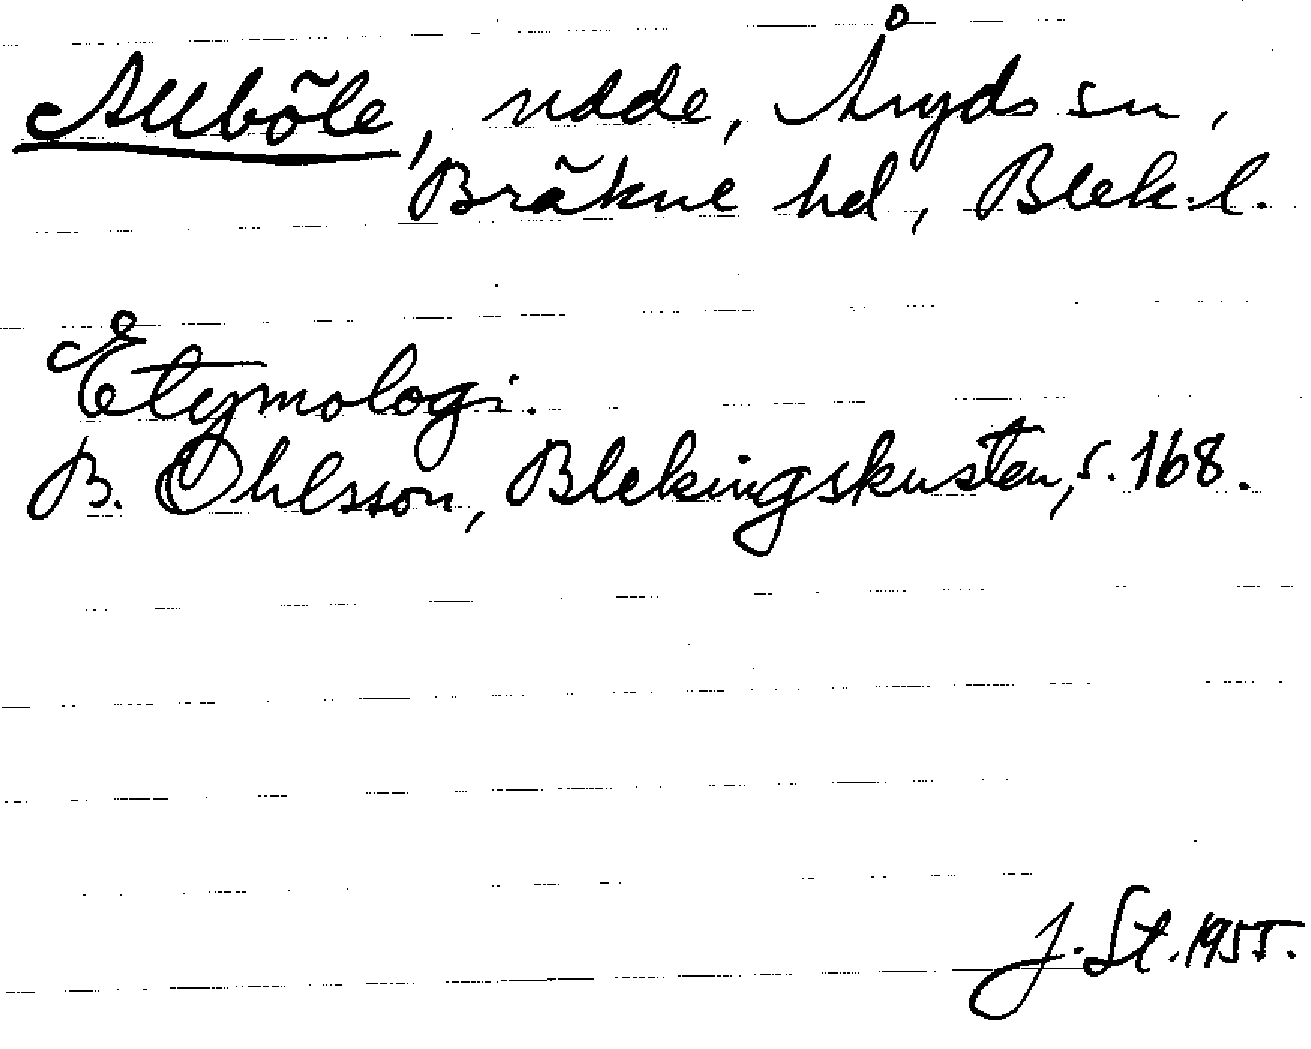 Allböle, udde, Åryds sn,
Bräkne hd, Blek.l.
Etymologi.
B. Ohlsson, Blekingskusten, s. 168.
J. St. 1955.